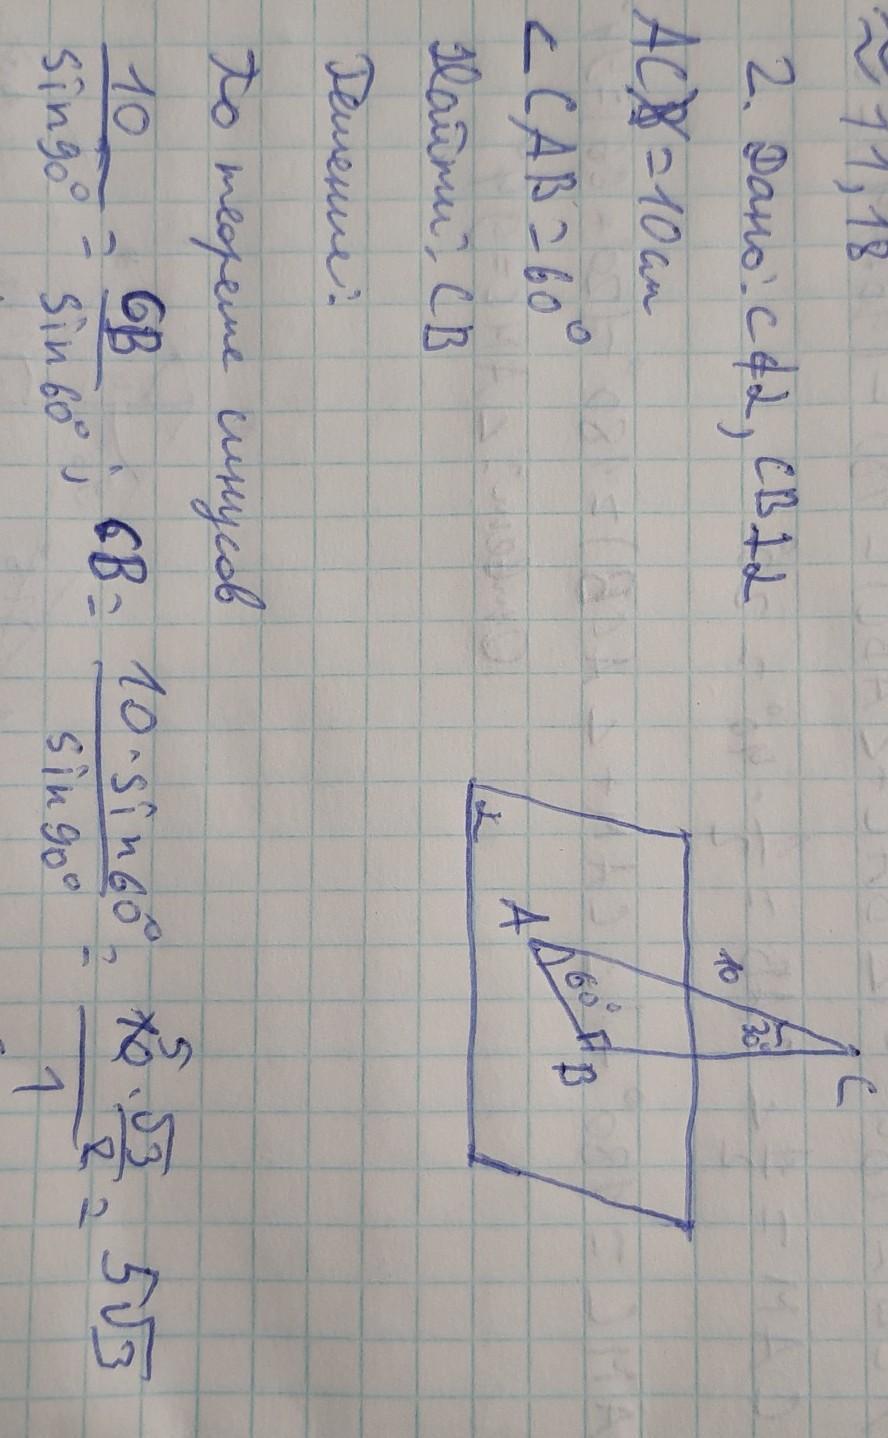 ≈ 11,18
2. Дано: C∉α, CB⊥α
AC = 10 см
∠CAB = 60°
Найти: CB
Решение:
По теореме синусов
10/sin90° = CB/sin60°; CB = 10·sin60°/sin90° = 10·√3/2/1 = 5√3
C
10
30°
A
60°
B
α
5